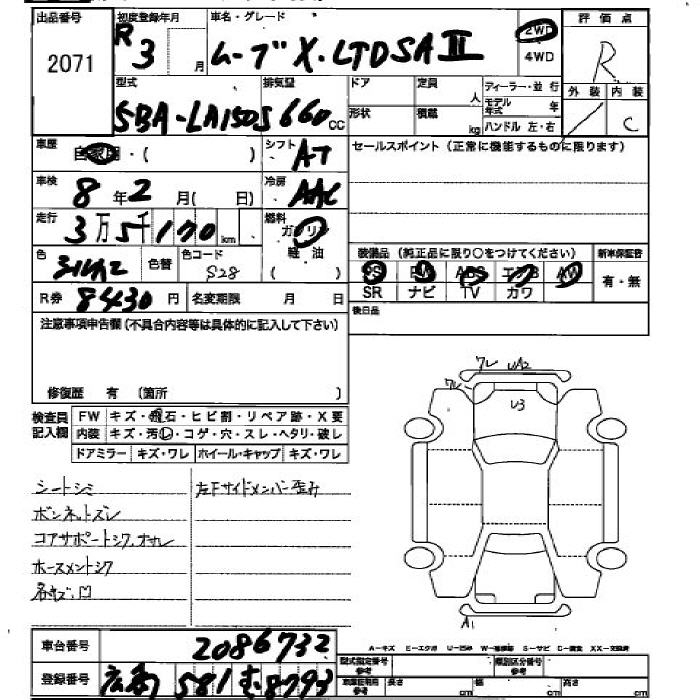 出品番号
2071
初度登録年月
R3 月
車名・グレード
ムーブ X.LTD SAⅢ
2WD
4WD
評価点
R
外装 内装
C
型式
5BA-LA150S
排気量
660 cc
ドア
定員 人
形状
積載 kg
ディーラー・並行
モデル年式 年
ハンドル 左・右
車歴
自家用・( )
シフト
AT
セールスポイント (正常に機能するものに限ります)
車検
8年2月( 日)
冷房
AAC
走行
3万5千170km
燃料
ガソリン
軽油
( )
色
シルバー2
色替
色コード
S28
装備品 (純正品に限り○をつけてください)
新車保証書
PS PW ABS エアB AW
SR ナビ TV カワ
有・無
R券
8430円
名変期限 月 日
後日品
注意事項申告欄(不具合内容等は具体的に記入して下さい)
修復歴 有 (箇所 )
検査員
記入欄
FW キズ・飛石・ヒビ割・リペア跡・X要
内装 キズ・汚レ・コゲ・穴・スレ・ヘタリ・破レ
ドアミラー キズ・ワレ ホイール・キャップ キズ・ワレ
シートシミ
ボンネットズレ
コアサポートシワ、
ホースメントシワ
左Fサイドメンバー歪み
ワレ UA2
ワレ
U3
A1
A-キズ E-エクボ U-凹み W-補修跡 S-サビ C-腐食 XX-交換済
車台番号
2086732
登録番号
広島 581 む 8793
型式指定番号
参考
類別区分番号
参考
車庫証明用
参考
長さ cm 幅 cm 高さ cm